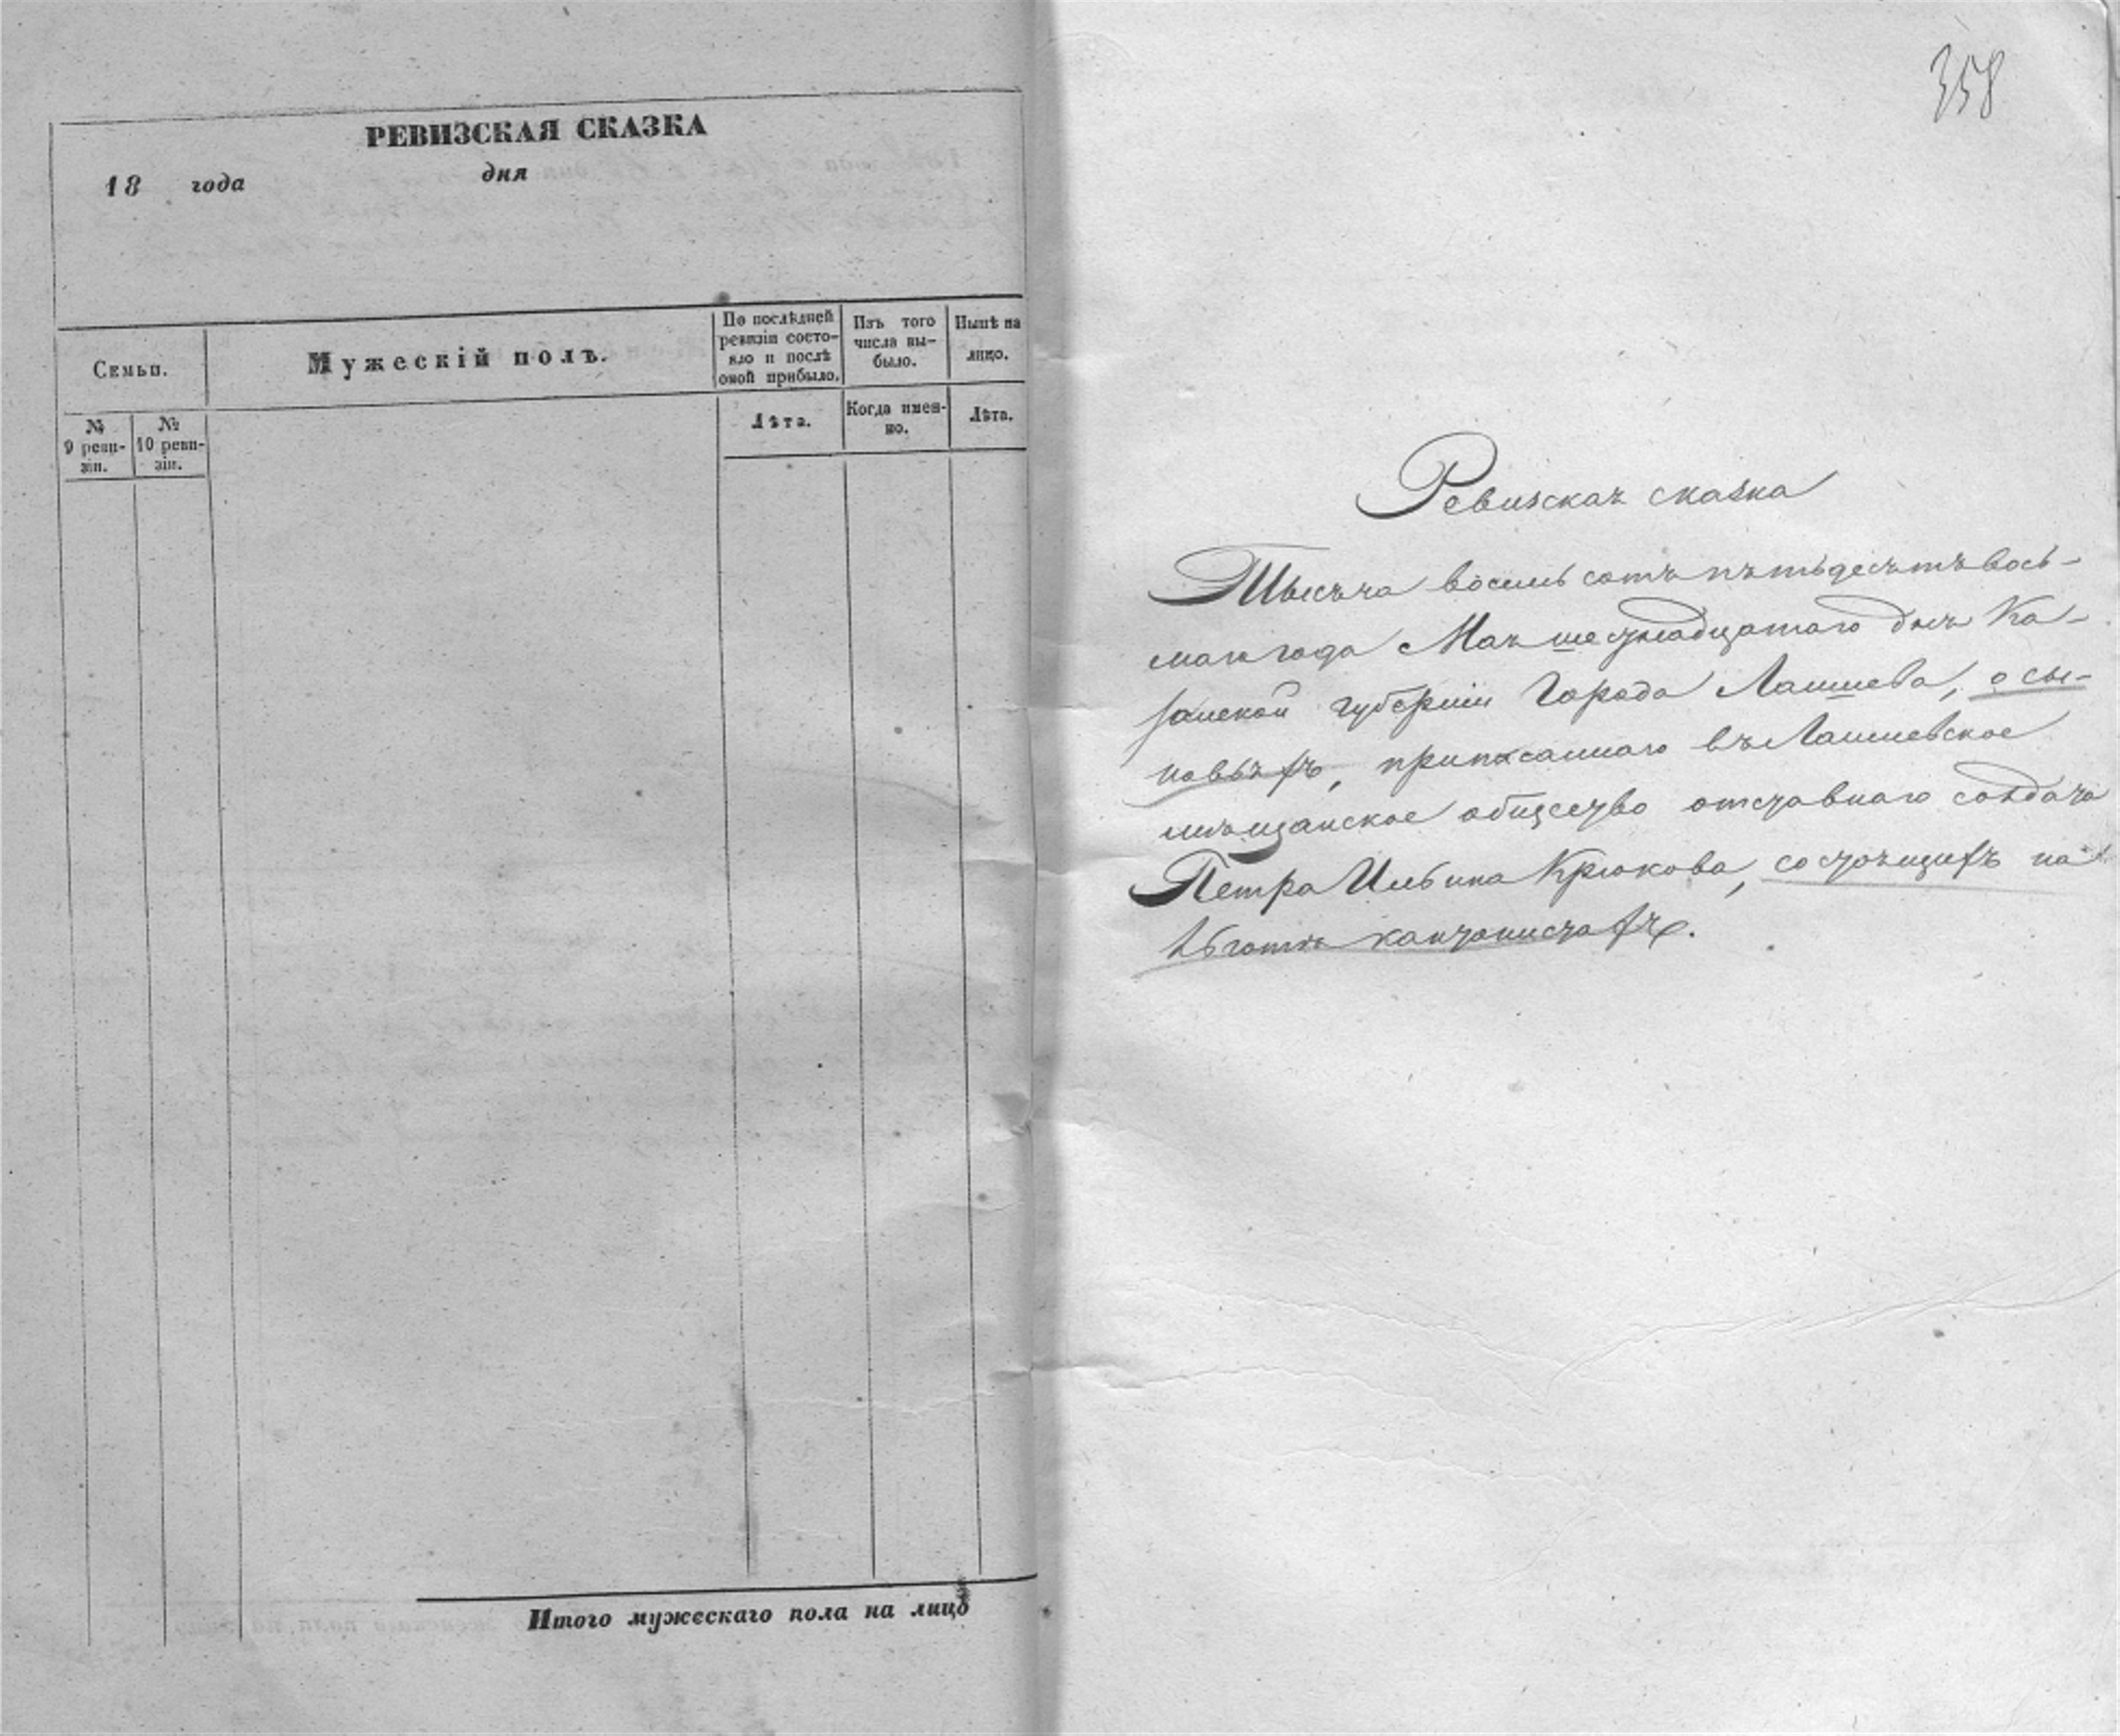 РЕВИЗСКАЯ СКАЗКА
18 года дня
Семьи.
Мужескій полъ.
По послѣдней ревизіи состояло и послѣ оной прибыло.
Изъ того числа выбыло.
Нынѣ на лицо.
№ 9 ревизіи.
№ 10 ревизіи.
Лѣта.
Когда именно.
Лѣта.
Итого мужескаго пола на лицо
358
Ревизская сказка
Тысяча восемь сотъ пятьдесятъ вось-
маго года Мая шестнадцатаго дня Ка-
занской губерніи Города Лаишева, о сы-
новьяхъ, приписаннаго въ Лаишевское
мѣщанское общество отставнаго солдата
Петра Ильина Крюкова, состоящихъ на
льготѣ кантонистахъ.